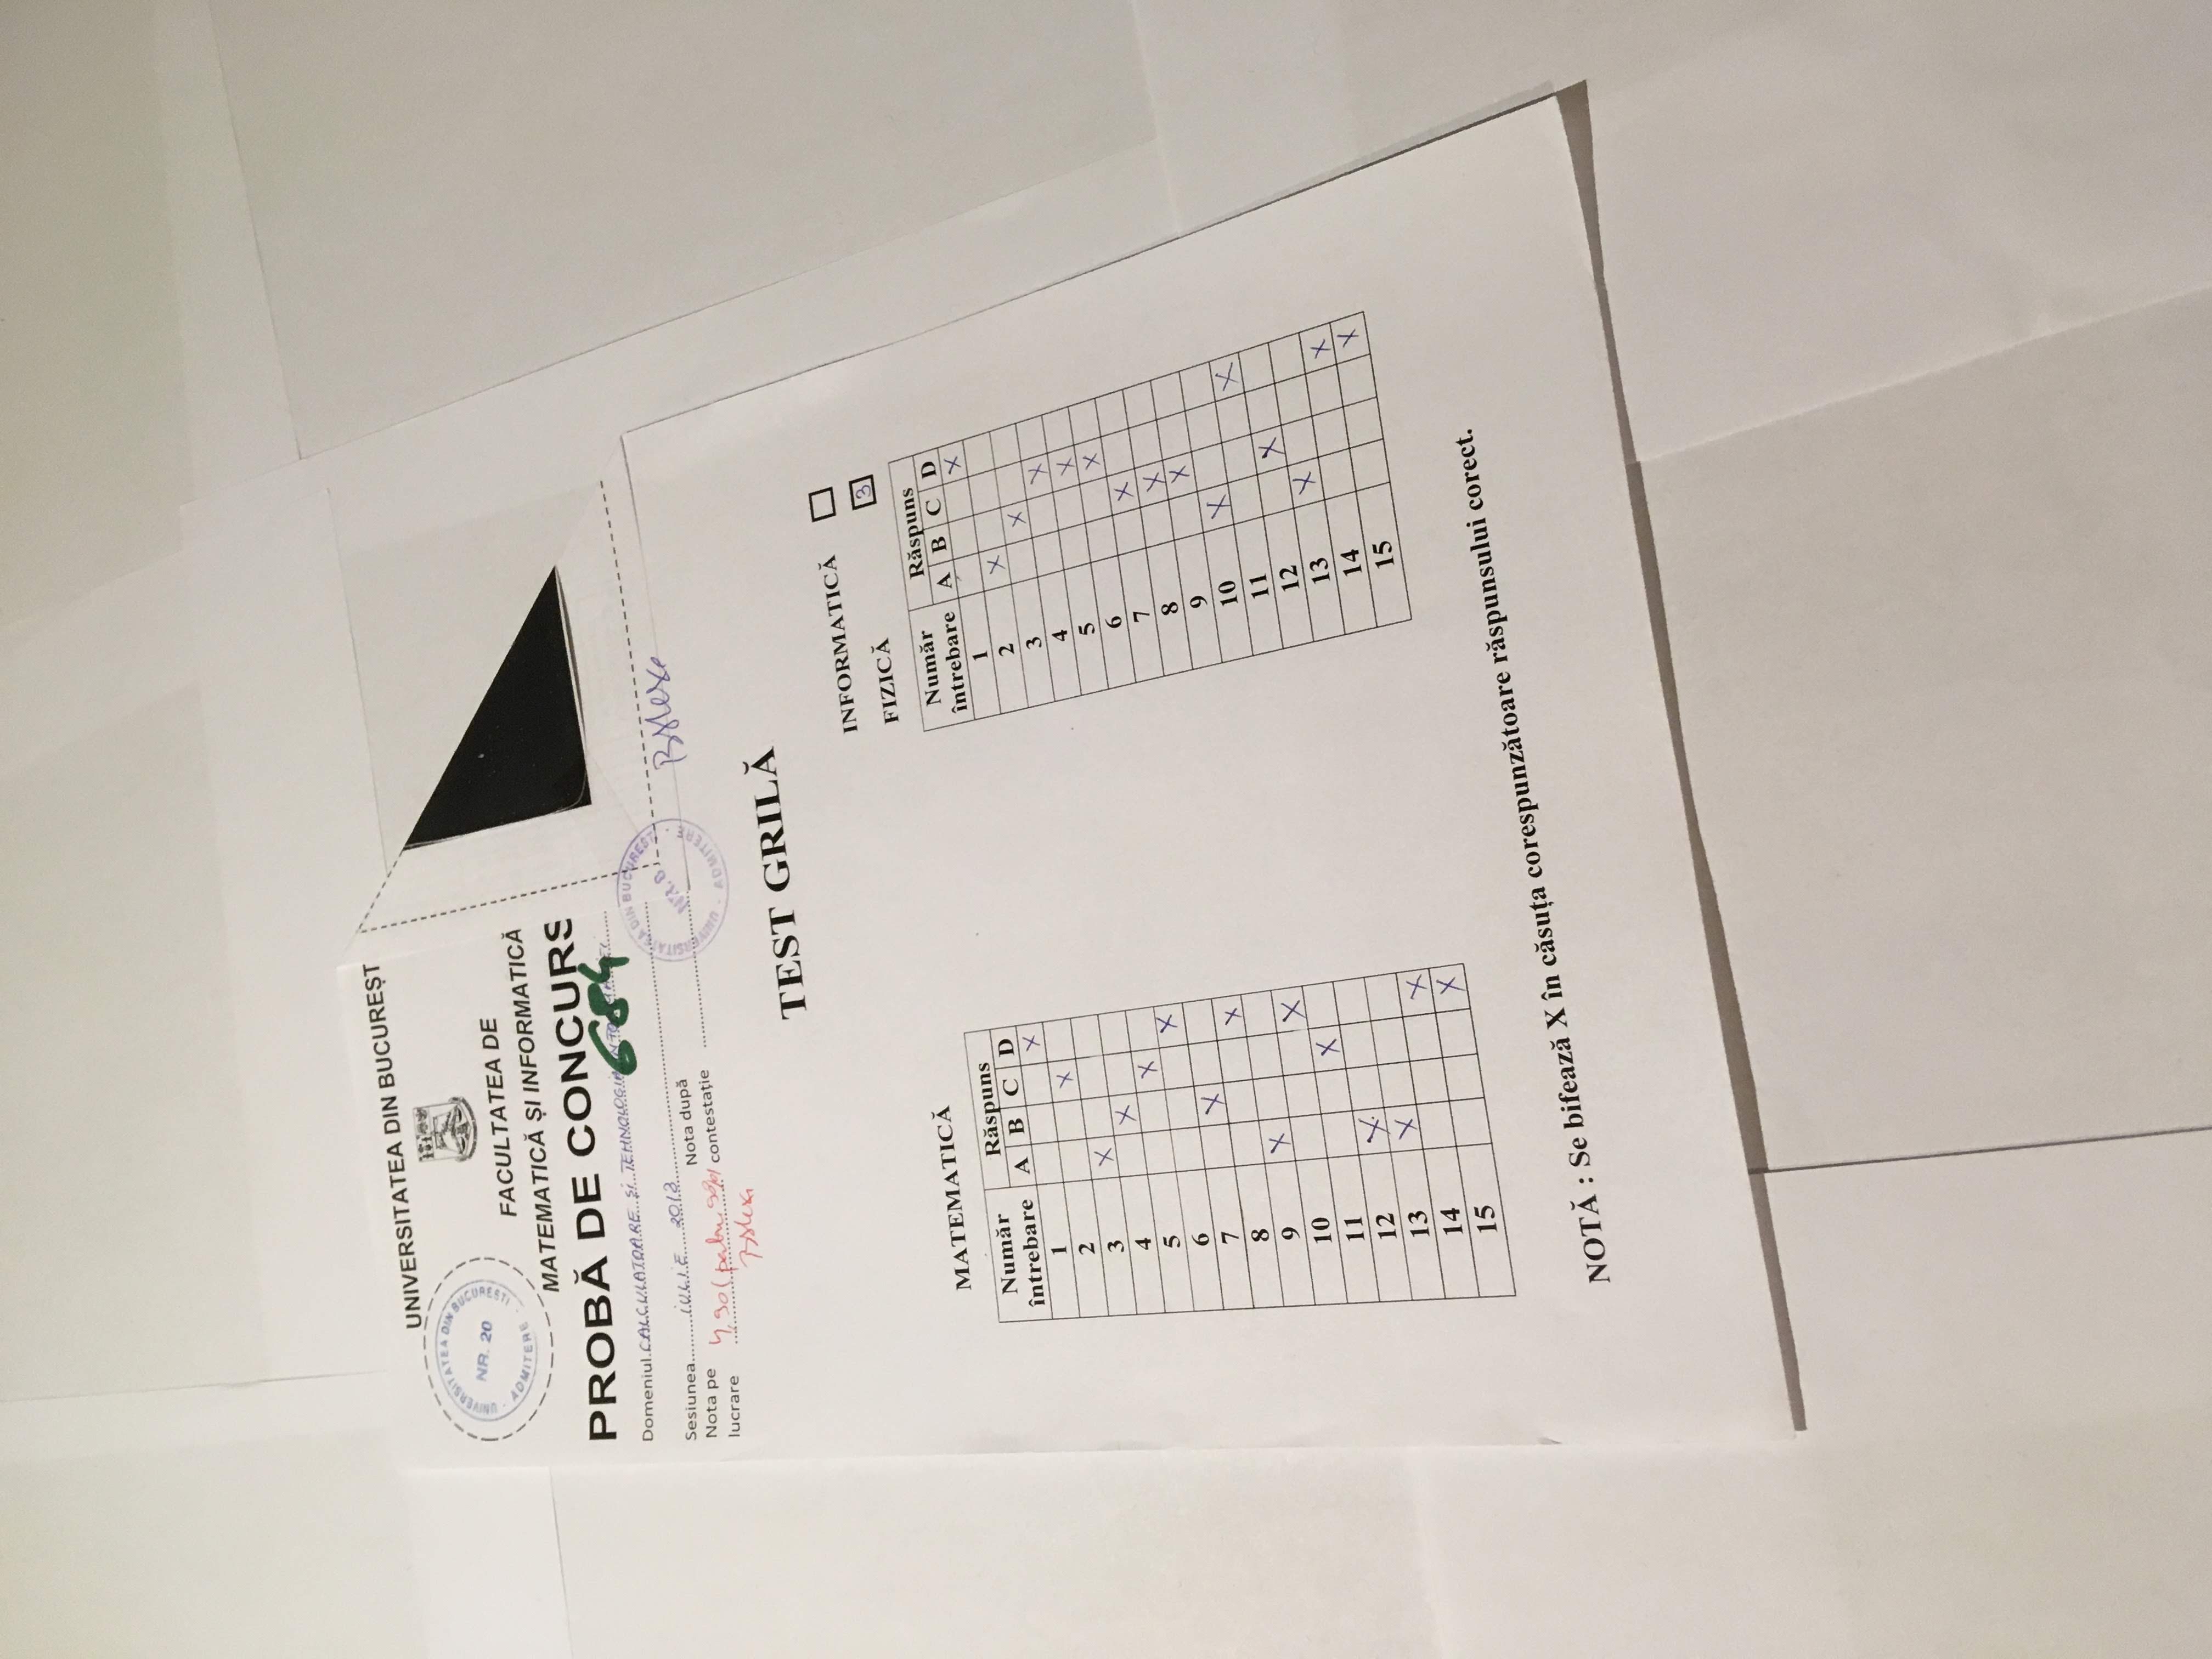 UNIVERSITATEA DIN BUCUREȘT
UNIVERSITATEA DIN BUCUREȘTI
NR. 20
ADMITERE
FACULTATEA DE
MATEMATICĂ ȘI INFORMATICĂ
PROBĂ DE CONCURS
684
Domeniul CALCULATOARE ȘI TEHNOLOGIA
Sesiunea IULIE 2018
Nota pe lucrare 4,90
Nota după contestație
DIN BUCUREȘTI
NR. 8
ADMITERE
TEST GRILĂ
INFORMATICĂ
FIZICĂ 3
MATEMATICĂ
Număr întrebare Răspuns
A B C D
1 X
2 X
3 X
4 X
5 X
6 X
7 X
8 X
9 X
10 X
11 X
12 X
13 X
14 X
15 X
Număr întrebare Răspuns
A B C D
1 X
2 X
3 X
4 X
5 X
6 X
7 X
8 X
9 X
10 X
11 X
12 X
13 X
14 X
15 X
NOTĂ : Se bifează X în căsuța corespunzătoare răspunsului corect.